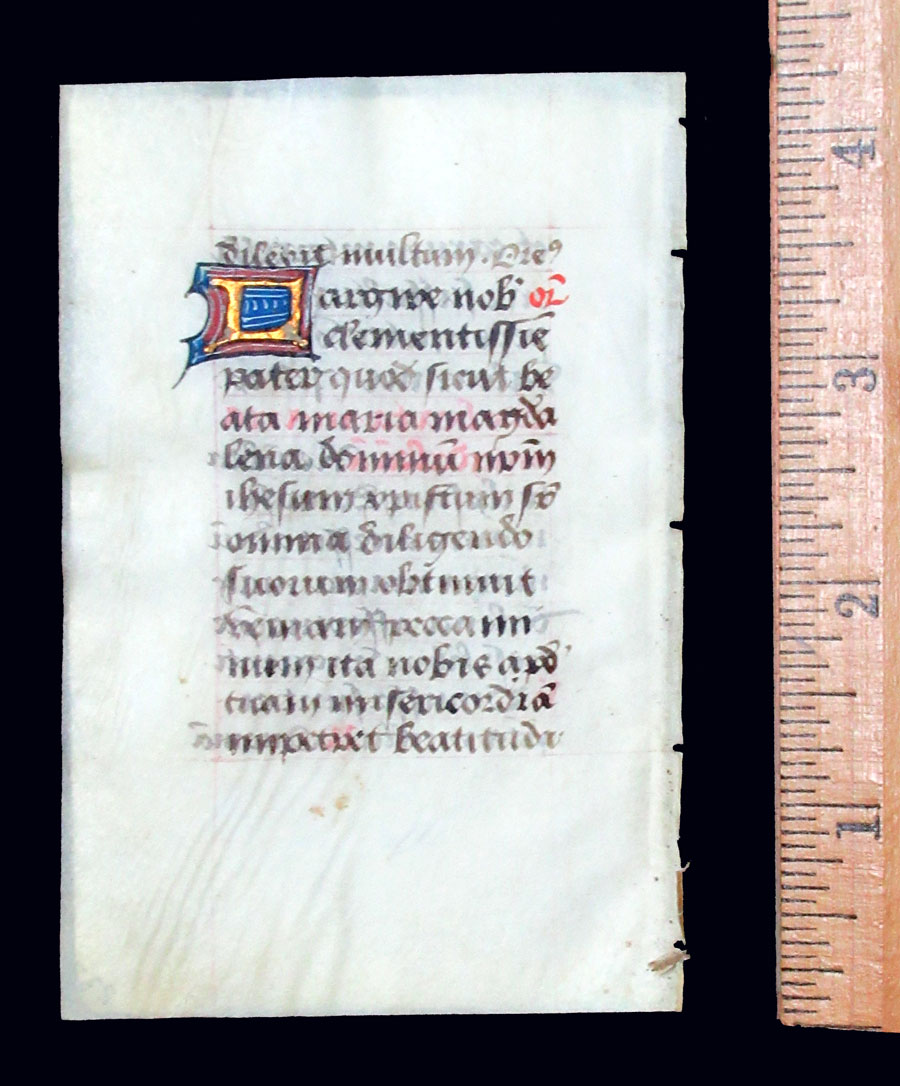 dilexit multum. Ores
Largire nob or̄
clementissīe
pater quod sicut be
ata maria magda
lena dominū nr̄m
ihesum xpistum sr̄
omnia diligendo
suorum obtinuit
veniam pecca mi
num ita nobis apd'
tuam misericordiā
impetret beatitudi
4
3
2
1